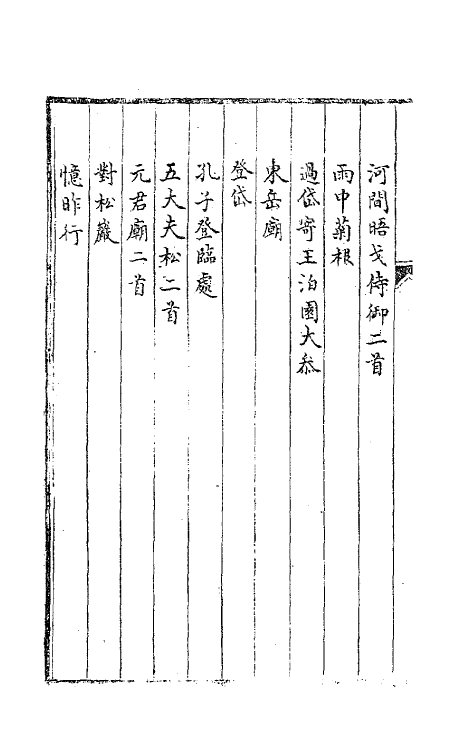 河間晤戈侍御二首
雨中菊根
過岱寄王泊園大叅
東岳廟
登岱
孔子登臨處
五大夫松二首
元君廟二首
對松巖
憶昨行